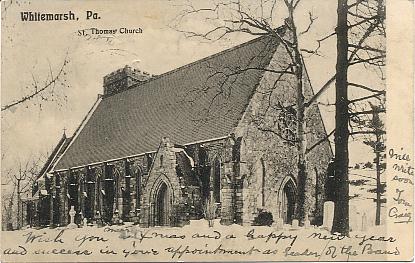 Whitemarsh, Pa.
St. Thomas Church
Wish you a merry Xmas and a happy new year
and success in your appointment as leader of the Band
write
soon
Tom
Craig